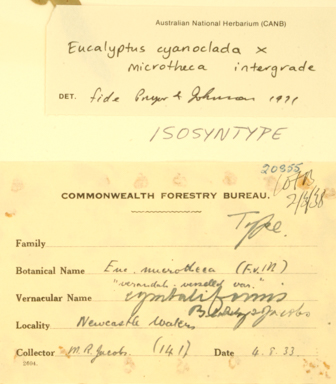 Australian National Herbarium (CANB)
Eucalyptus cyanoclada x
microtheca intergrade
DET. fide Pryor & Johnson 1971
ISOSYNTYPE
20955
2/5/38
COMMONWEALTH FORESTRY BUREAU.
Type.
Family
Botanical Name Euc. microtheca (F.v.M)
Vernacular Name cymbaliformis
Blakely & Jacobs
Locality Newcastle Waters
Collector M.R. Jacobs. (141) Date 4.8.33.